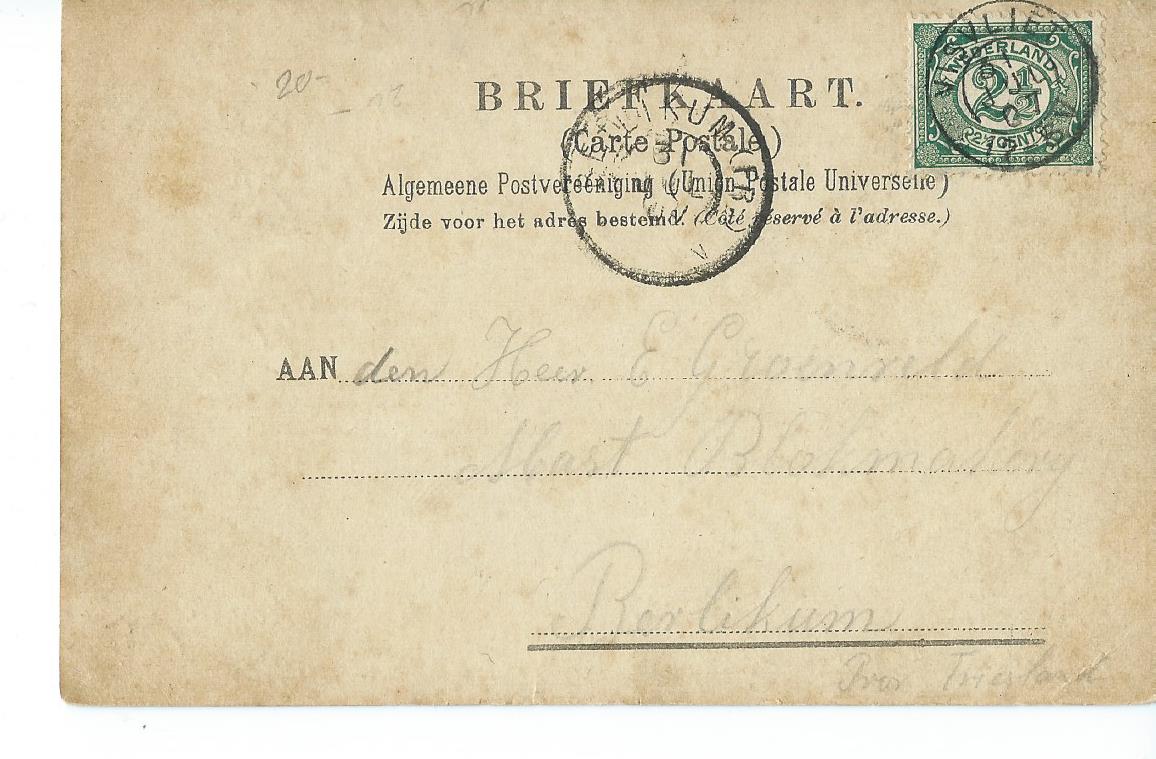 20-
NEDERLAND
2½
2½ CENT
BRIEFKAART.
(Carte Postale)
Algemeene Postvereeniging (Union Postale Universelle)
Zijde voor het adres bestemd. (Côté réservé à l'adresse.)
AAN den Heer E Groenveld
Berlikum
Prov Friesland